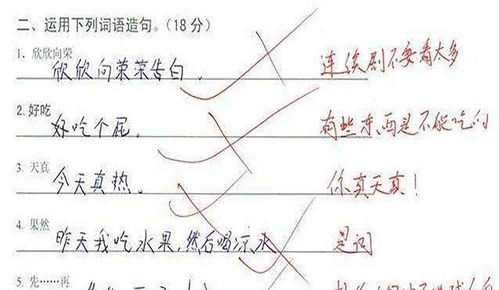 二、运用下列词语造句。（18分）
1. 欣欣向荣
欣欣向荣荣告白。
连续剧不要看太多
2. 好吃
好吃个屁。
有些东西是不能吃的
3. 天真
今天真热。
你真天真！
4. 果然
昨天我吃水果，然后喝凉水
是词
5. 先……再